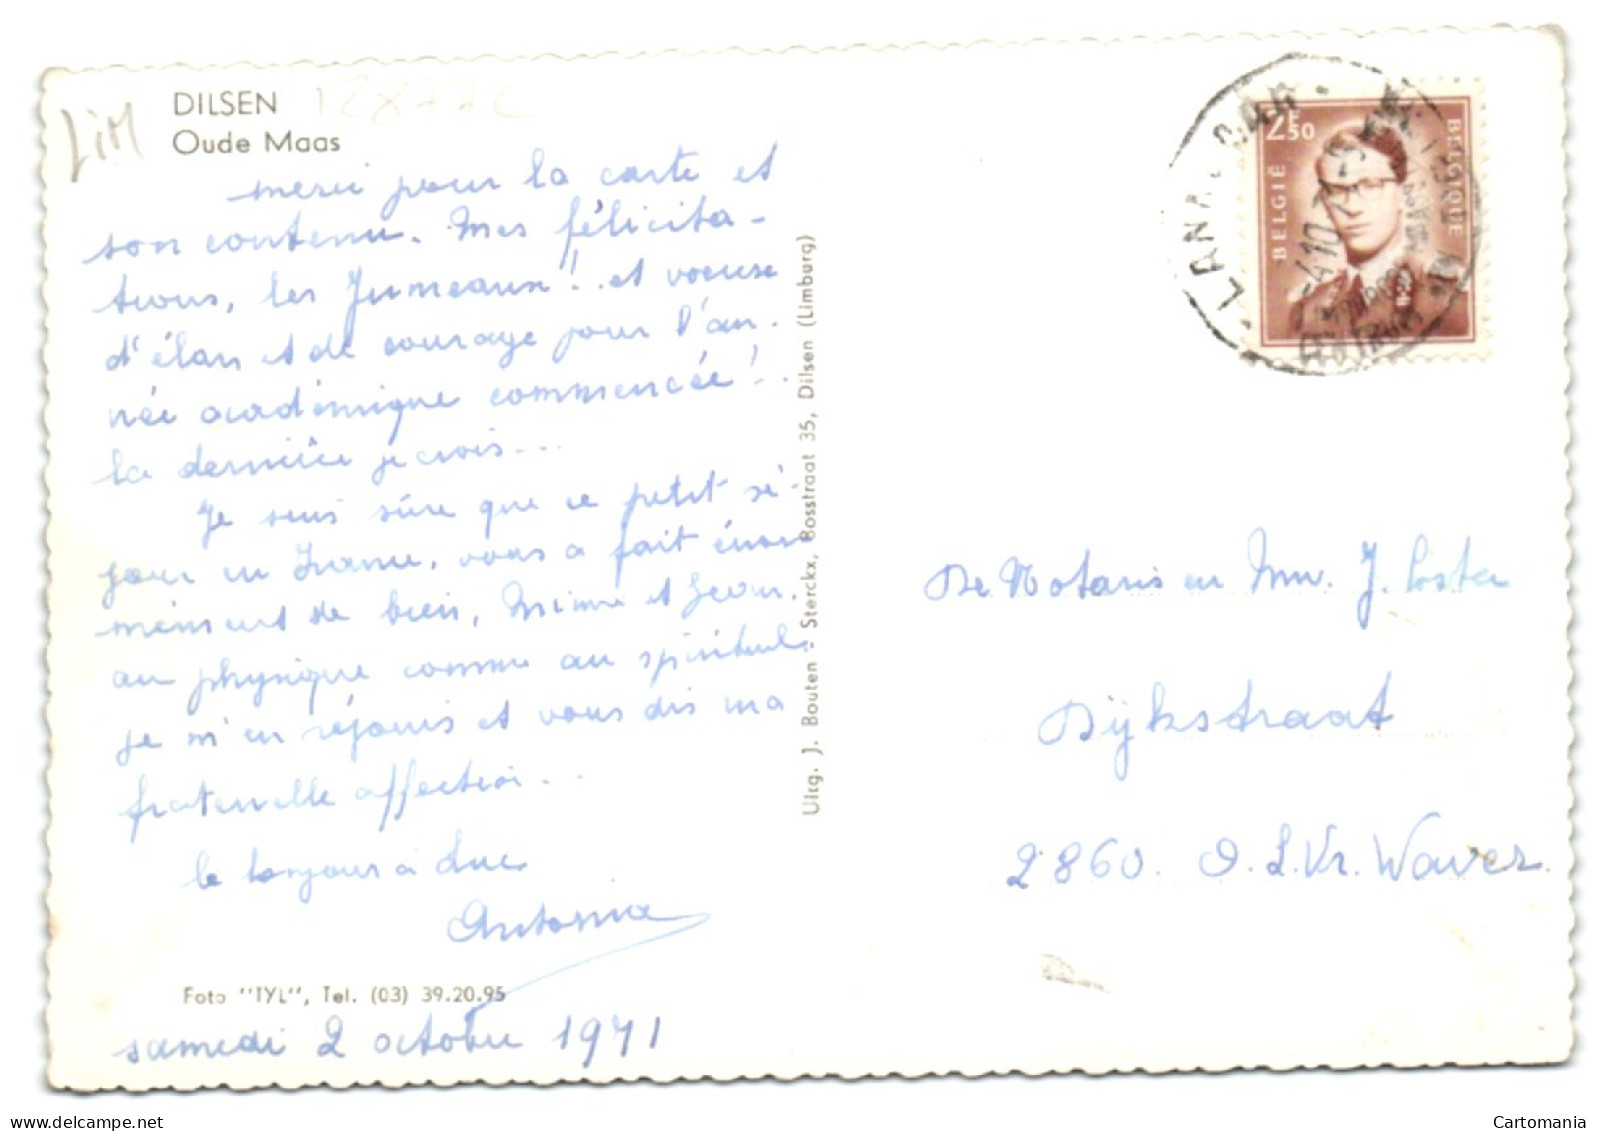 DILSEN
Oude Maas
LiM
12877C
merci pour la carte et
son contenu. Mes félicita-
tions, les Jumeaux!.. et
d'élan et de courage pour l'an.
née académique commencée!..
la dernière je crois...
Je suis sûre que ce petit sé-
jour en France, vous a fait énor
mément de bien, Mimie et Jean.
au physique comme au spirituel.
je m'en réjouis et vous dis ma
fraternelle affection...
le bonjour à Luc
Antonia
Foto "TYL", Tel. (03) 39.20.95
samedi 2 octobre 1971
Uitg. J. Bouten - Sterckx, Bosstraat 35, Dilsen (Limburg)
2F50
BELGIË
BELGIQUE
-4.10.71-
De Notaris en Mw. J.
Dijkstraat
2860. O.L.Vr. Waver.
Cartomania